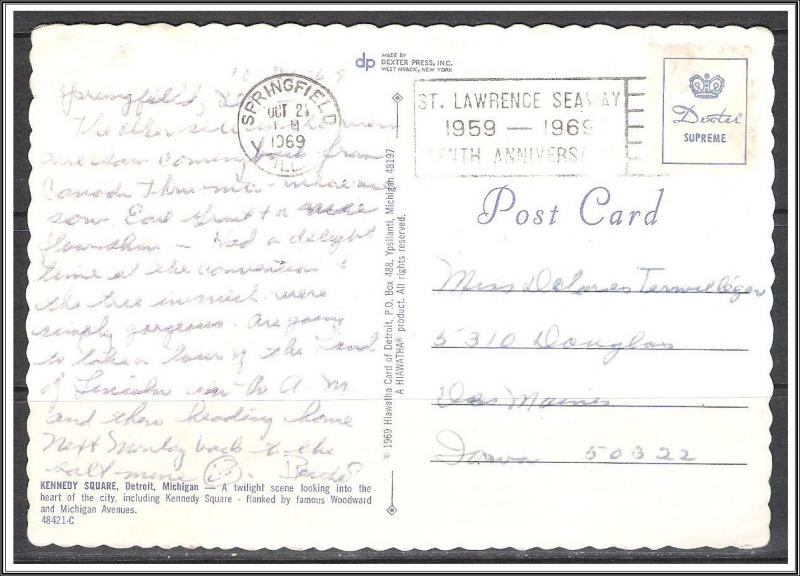 dp MADE BY
DEXTER PRESS, INC.
WEST NYACK, NEW YORK
SPRINGFIELD
OCT 2
1969
ILL
ST. LAWRENCE SEAWAY
1959 — 1969
TENTH ANNIVERSA
Dexter
SUPREME
Post Card
Springfield,
The other side is the
we saw coming from
Canada thru
saw. Had a delight
time at the convention &
the tree in mich. were
simply gorgeous. Are going
to take a tour of the Land
of Lincoln in the A.M.
and then heading home
Next Monday back to the
salt mine
Miss Delores Terwilliger
5310 Douglas
Des Moines
Iowa 50322
© 1969 Hiawatha Card of Detroit, P.O. Box 488, Ypsilanti, Michigan 48197
A HIAWATHA® product. All rights reserved.
KENNEDY SQUARE, Detroit, Michigan — A twilight scene looking into the
heart of the city, including Kennedy Square - flanked by famous Woodward
and Michigan Avenues.
48421-C